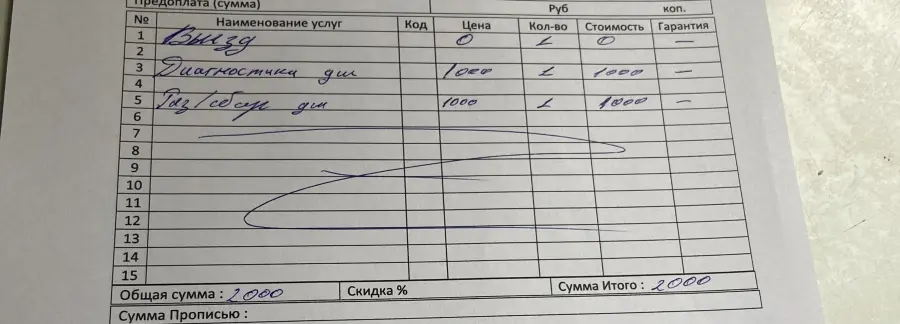 Предоплата (сумма) Руб коп.
№ Наименование услуг Код Цена Кол-во Стоимость Гарантия
1 Выезд 0 1 0 —
2
3 Диагностика дм 1000 1 1000 —
4
5 Раз/сбор дм 1000 1 1000 —
6
7
8
9
10
11
12
13
14
15
Общая сумма : 2000 Скидка % Сумма Итого : 2000
Сумма Прописью :